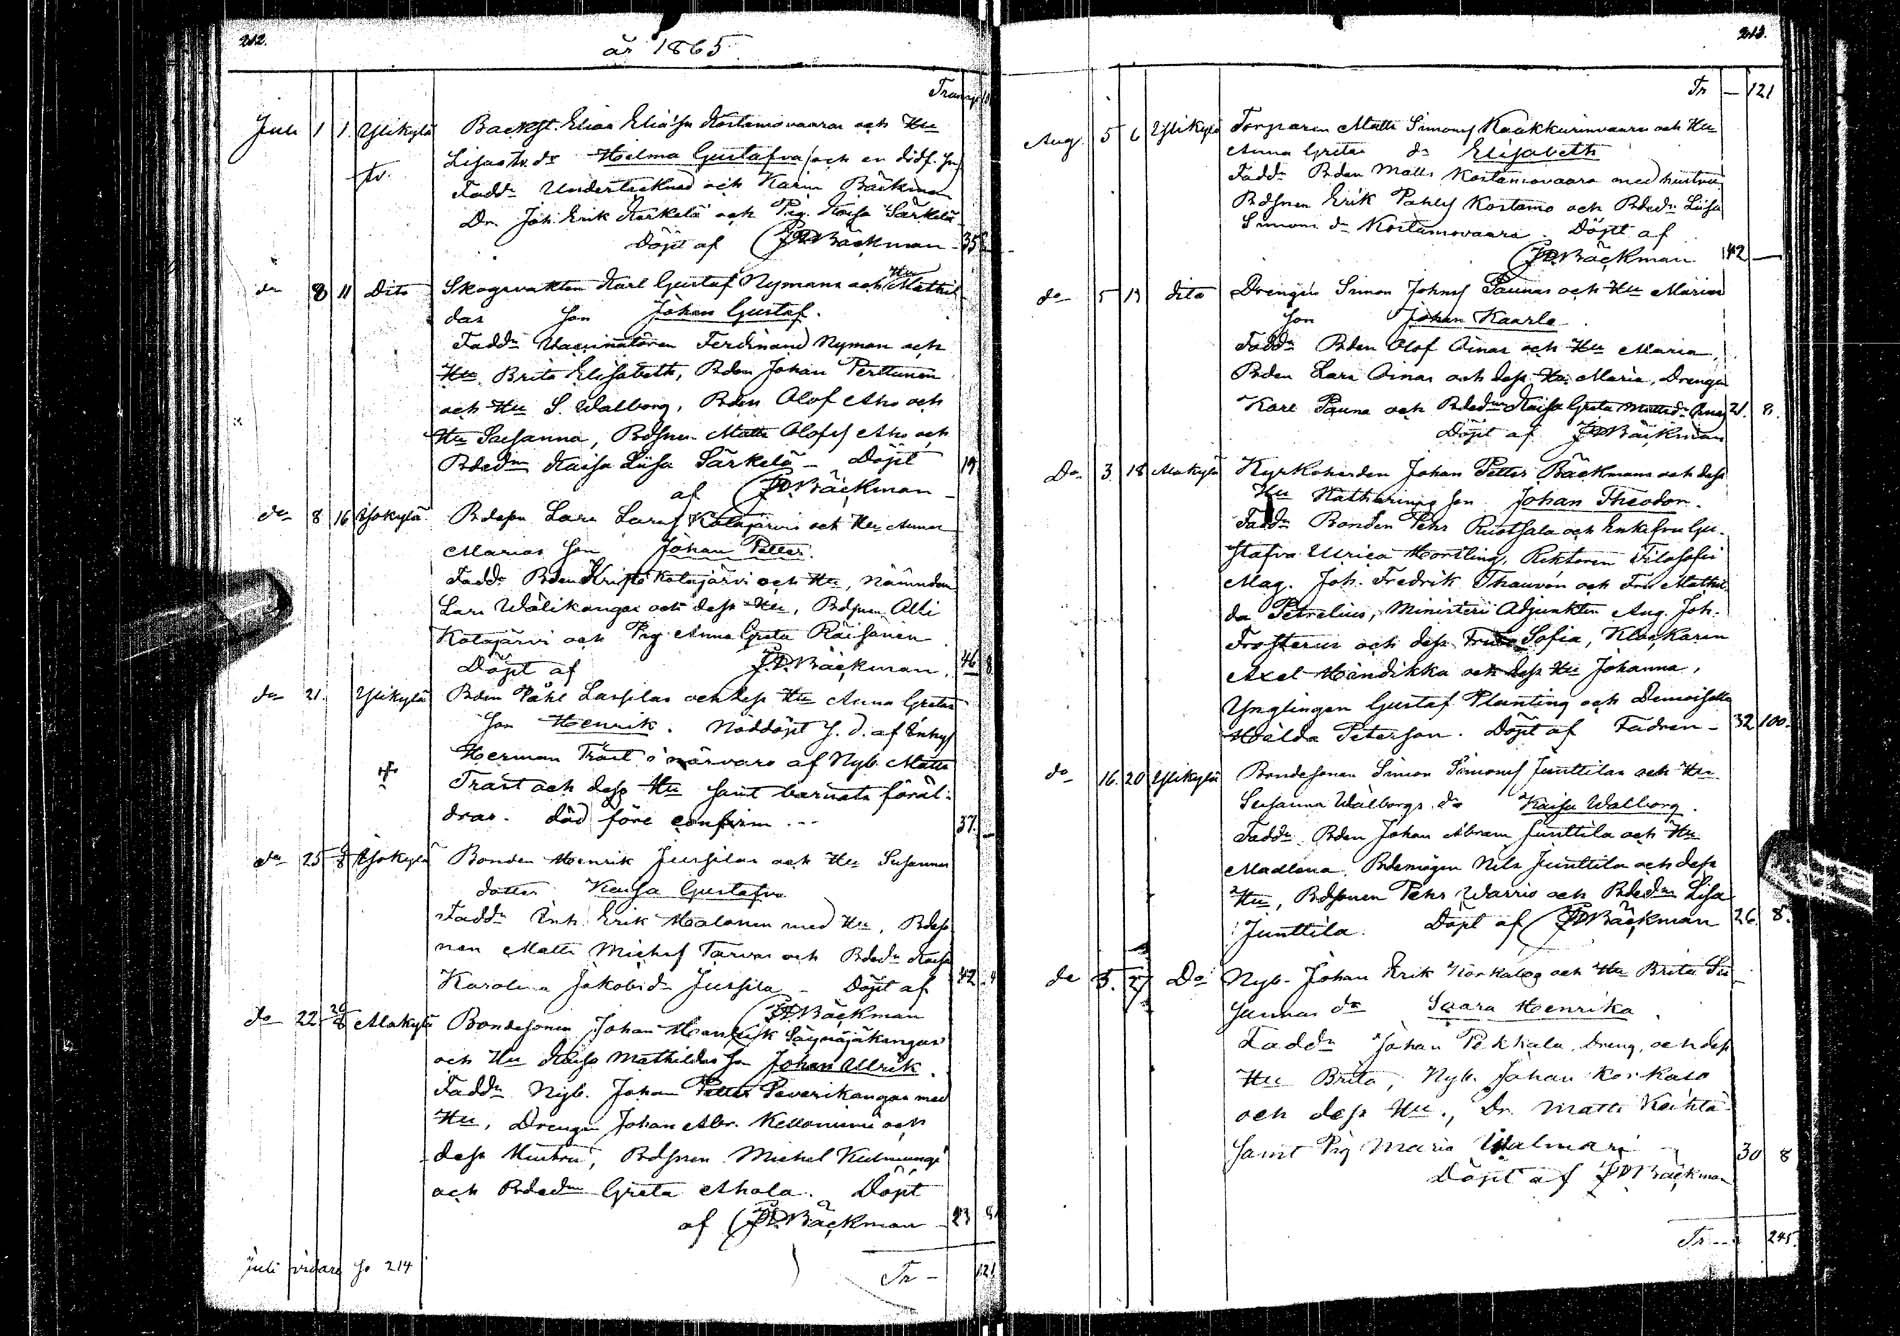 212.
år 1865
Transp.
Juli 1 1. Ylikylä Backst. Elias Eliæsn Kostamovaaran och Hu
tv. Lisas tv. dr Hilma Gustafva (och en dödf. son)
Faddr Undertecknad och Karin Bäckman
Dr. Joh. Erik Särkelä och Pig. Kaisa Särkelä
Döpt af JP Bäckman - 35
do 8 11 Dito Skogsvakten Karl Gustaf Nymans och Hu Mathil-
das son Johan Gustaf.
Faddr Vaccinatören Ferdinand Nyman och
Hu Brita Elisabeth, Bden Johan Perttunen
och Hu S. Walborg, Bden Olof Aho och
Hu Susanna, Bdsnn Matts Olofss Aho och
Bdedrn Kaisa Liisa Särkelä - Döpt 19
af JP. Bäckman -
do 8 16 Isokylä Bdesn Lars Larss Katajärvis och Hu Anna
Marias son Johan Petter.
Faddr Bden Kristo Katajärvi och Hu, Nämndem
Lars Wälikangas och dess Hu, Bdsnn Olli
Katajärvi och Pig. Anna Greta Räisänen
Döpt af J.P. Bäckman. 46 8
do 21. Ylikylä Bden Påhl Lassilas och dess Hu Anna Gretas
son Henrik. Nöddöpt s. d. af Enkes
Herman Träsk i närvaro af Nyb. Matts
Trast och dess Hu samt barnets föräl-
drar. död före confirm... 37. -
do 25 Isokylä Bonden Henrik Jussilas och Hu Susannas
dotter Kaisa Gustafva
Faddr Inh. Erik Halonen med Hu, Bdes-
nen Matts Michels Tarvas och Bdedr Kaisa
Karolina Jakobsdr Jussila - Döpt af 42 4
JP. Bäckman
do 22 Alakylä Bondesonen Johan Henrik Säynäjäkangas
och Hu Kaisa Mathildas son Johan Ulrik.
Faddr Nyb. Johan Petter Severikangas med
Hu, Drengen Johan Abr. Kellonimi och
dess Hustru, Bdsnen Michel Kulmunge
och Bdedrn Greta Ahola. Döpt
af JP. Bäckman - 23 8
Juli vidare so 214
Tr - 121
213.
Tr - 121
Aug. 5 6 Ylikylä Torparen Matts Simons Kaakkurinvaara och Hu
Anna Gretas dr Elisabeth
Faddr Bden Matts Kostamovaara med hustru
Bdsnen Erik Pahls Kostamo och Bdedr Liisa
Simons dr Kostamovaara. Döpt af
JP. Bäckman 42 -
do 5 13 dito Drengen Simon Johns Paunas och Hu Marias
son Johan Kaarle.
Faddr Bden Olof Oinas och Hu Maria,
Bden Lars Oinas och dess Hu Maria, Drengen
Karl Pauna och Bdedrn Kaisa Greta Mattsdr Oinas 21. 8.
Döpt af JP Bäckman
Do 3 18 Alakylä Kyrkoherden Johan Petter Bäckmans och dess
Hu Katharinas son Johan Theodor.
Faddr Bonden Pehr Ruotsala och Enkefru Gu-
stafva Ulrica Montling, Rektoren Filosofie
Mag. Joh. Fredrik Thauvón och Fru Mathil-
da Petrelius, Ministerii Adjunkten Aug. Joh.
Frosterus och dess Fru Sofia, Klockaren
Axel Hindikka och dess Hu Johanna,
Ynglingen Gustaf Planting och Demoiselle
Hilda Peterson. Döpt af Fadren - 32 100.
do 16. 20 Ylikylä Bondesonen Simon Simons Junttilas och Hu
Susanna Walborgs dr Kaisa Walborg.
Faddr Bden Johan Abram Junttila och Hu
Madlena, Bdemågen Nils Junttila och dess
Hu, Bdsonen Pehr Warrio och Bdedrn Lisa
Junttila. Döpt af JP Bäckman 26. 8.
do 5. 27 Do Nyb. Johan Erik Korkalos och Hu Brita Su-
sannas dr Saara Henrika.
Faddr Johan Pekkala, Dreng, och dess
Hu Brita, Nyb. Johan Korkalo
och dess Hu., Dr. Matts Köhklä
samt Pig Maria Walmari - 30 8
Döpt af JP Bäckman
Tr --- 245.